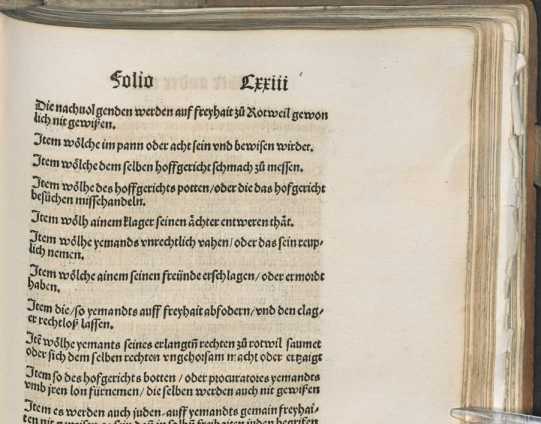 Folio Lxxiii
Die nachuolgenden werden auf freyhait zů Rotweil gewon
lich nit gewisen.
Item wölche im pann oder acht sein vnd bewisen wirder.
Item wölche dem selben hoffgericht schmach zů messen.
Item wölhe des hoffgerichts potten/oder die das hofgericht
besůchen misshandeln.
Item wölh ainem klager seinen ächter entweren thät.
Item wölhe yemands vnrechtlich vahen/oder das sein reup-
lich nemen.
Item wölche ainem seinen freünde erschlagen/oder ermordt
haben.
Item die/so yemandts auff freyhait abfodern/vnd den clag-
er rechtloß lassen.
Itē wölhe yemants seines erlangtñ rechten zů rotwil saumet
oder sich dem selben rechten vngehorsam macht oder ertzaigt
Item so des hofgerichts botten/oder procuratores yemandts
vmb jren lon fürnemen/die selben werden auch nit gewisen
Item es werden auch juden auff yemandts gemain freyhai-